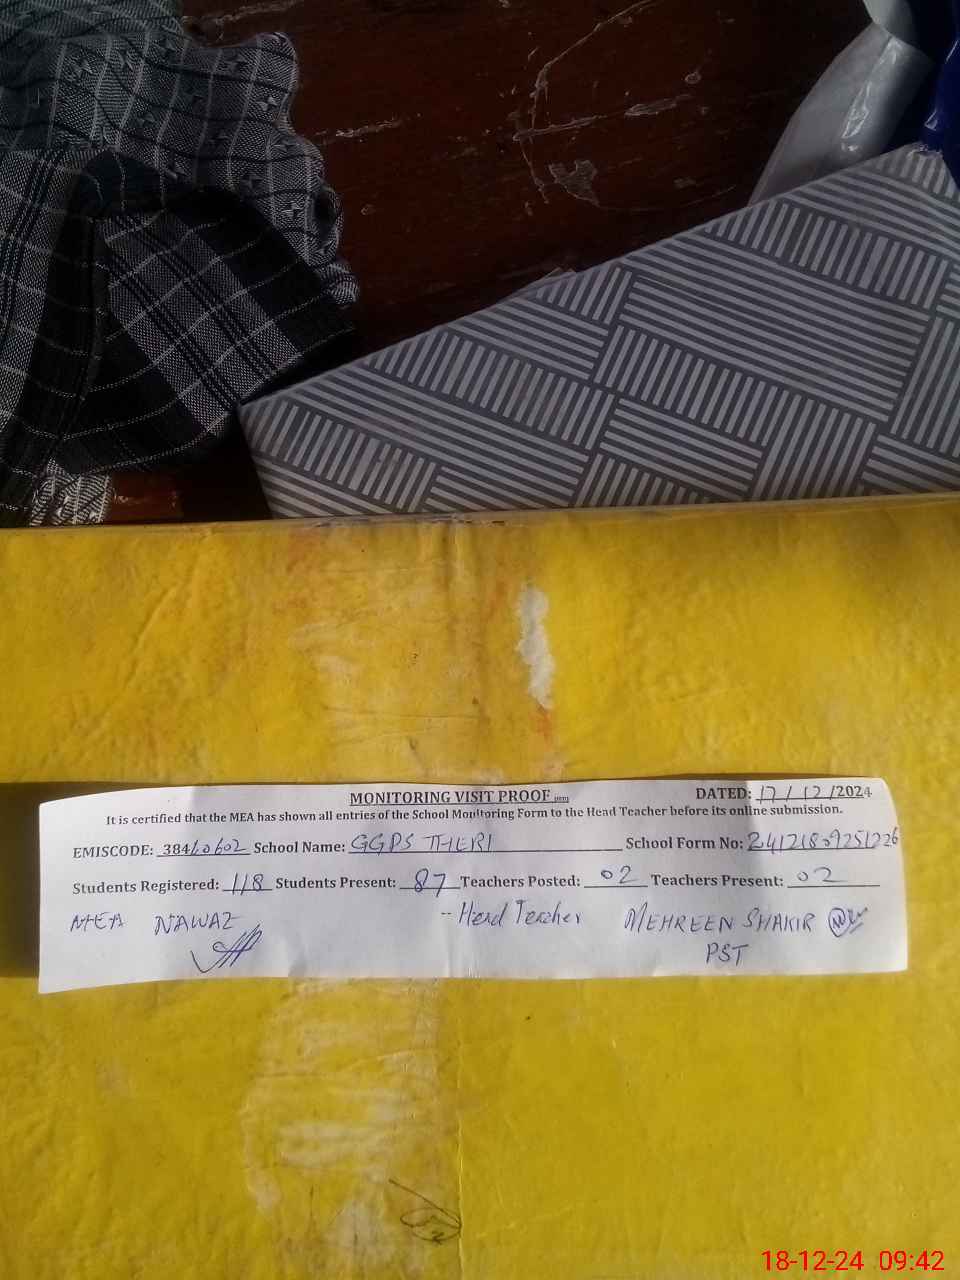 MONITORING VISIT PROOF
DATED: 17/12/2024
It is certified that the MEA has shown all entries of the School Monitoring Form to the Head Teacher before its online submission.
EMISCODE: 38410602 School Name: GGPS THERI School Form No: 24121809251226
Students Registered: 118 Students Present: 87 Teachers Posted: 02 Teachers Present: 02
MEA NAWAZ -- Head Teacher MEHREEN SHAKIR
PST
18-12-24 09:42